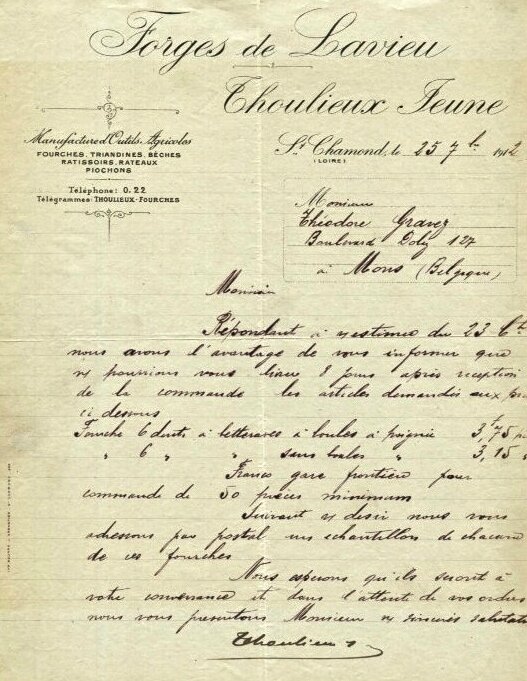 Forges de Lavieu
Thoulieux Jeune
Manufacture d'Outils Agricoles
FOURCHES, TRIANDINES, BÊCHES
RATISSOIRS, RATEAUX
PIOCHONS
Téléphone: 0.22
Télégrammes: THOULIEUX-FOURCHES
St Chamond, le 25 7bre 1912
(LOIRE)
Monsieur
Théodore Gravez
Boulevard Dolez 127
à Mons (Belgique)
Monsieur
Répondant à v/ estimée du 23 ct
nous avons l'avantage de vous informer que
ns pourrions vous livrer 8 jours après réception
de la commande les articles demandés aux prix
ci dessous
Fourche 6 dents à betteraves à boules à poignée 3f,75 p
" 6 " " sans boules " 3,15 "
Franco gare frontière pour
commande de 50 pièces minimum
Suivant v/ désir nous vous
adressons par postal un échantillon de chacune
de ces fourches
Nous espérons qu'ils seront à
votre convenance et dans l'attente de vos ordres
nous vous présentons Monsieur ns sincères salutations
Thoulieux